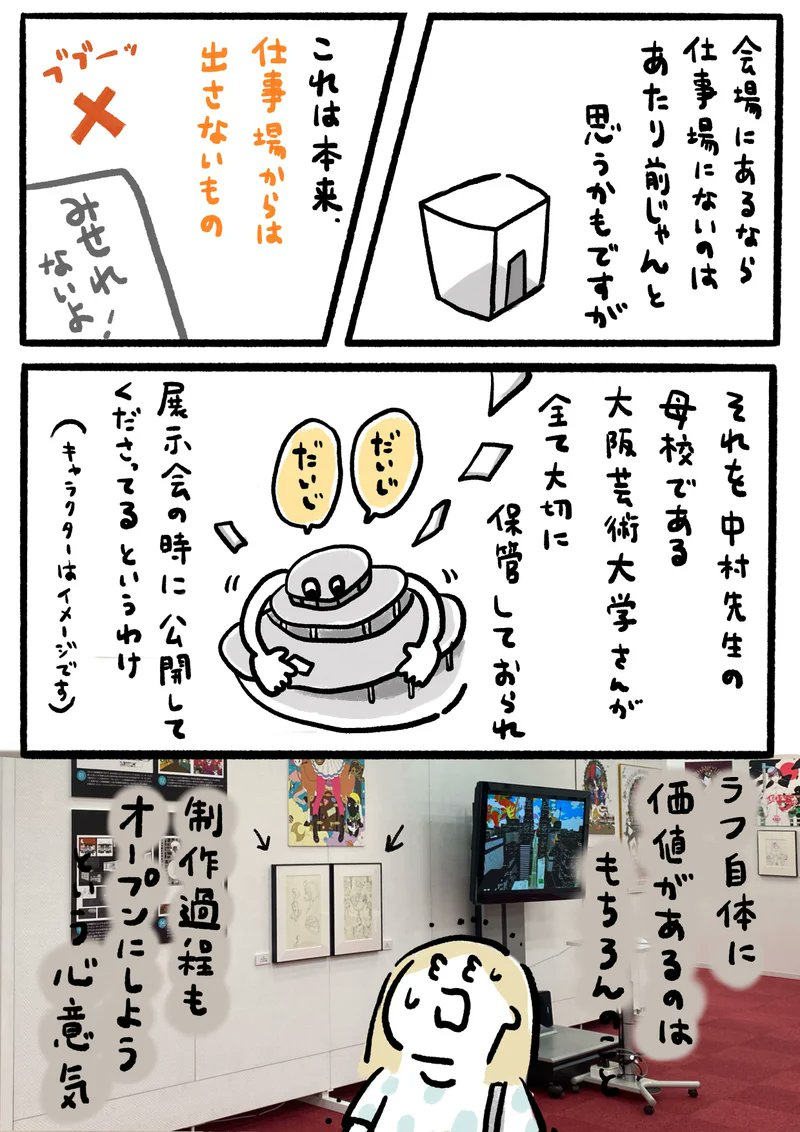 会場にあるなら
仕事場にないのは
あたり前じゃんと
思うかもですが
これは本来、
仕事場からは
出さないもの
ブブーッ
みせれ
ないよ!
それを中村先生の
母校である
大阪芸術大学さんが
全て大切に
保管しておられ
だいじ
だいじ
展示会の時に公開して
くださってるというわけ
(キャラクターはイメージです)
ラフ自体に
価値があるのは
もちろんのこと
制作過程も
オープンにしよう
という心意気